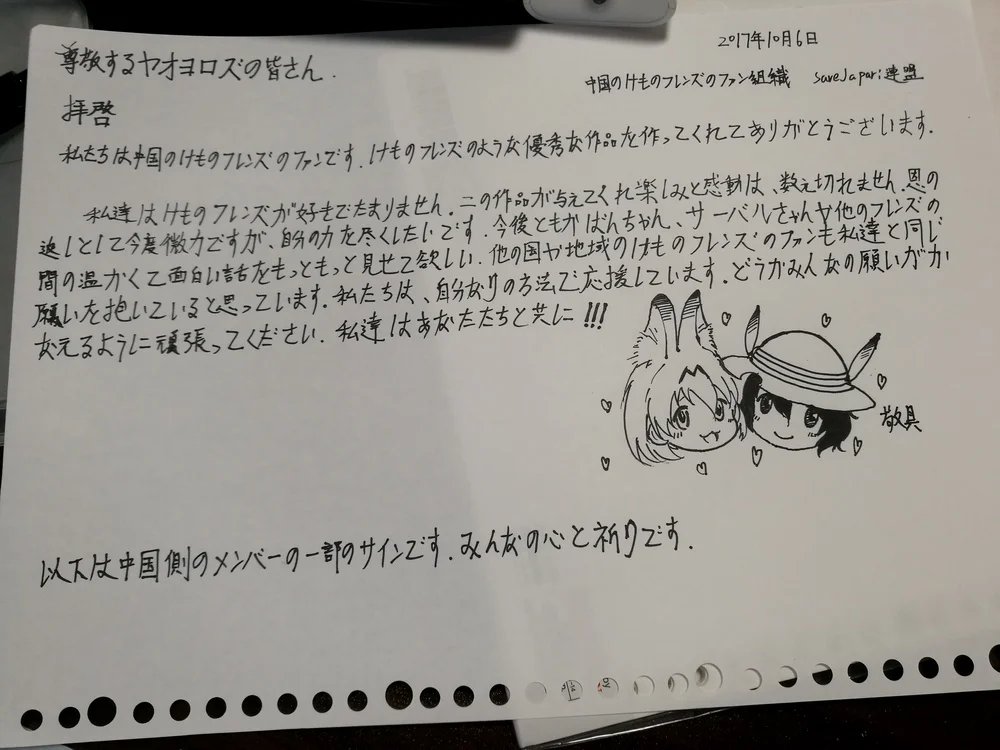 2017年10月6日
尊敬するヤオヨロズの皆さん.
中国のけものフレンズのファン組織 SaveJapari連盟
拝啓
私たちは中国のけものフレンズのファンです. けものフレンズのような優秀な作品を作ってくれてありがとうございます.
私達はけものフレンズが好きでたまりません. この作品が与えてくれ楽しみと感動は、数え切れません. 恩の
返しとして今度微力ですが、自分の力を尽くしたいです. 今後ともかばんちゃん、サーバルさんや他のフレンズの
間の温かくて面白い話をもっともっと見せて欲しい. 他の国や地域のけものフレンズのファンも私達と同じ
願いを抱いていると思っています. 私たちは、自分なりの方法で応援しています. どうかみんなの願いがか
なえるように頑張ってください. 私達はあなたたちと共に!!!
敬具
以下は中国側のメンバーの一部のサインです. みんなの心と祈りです.